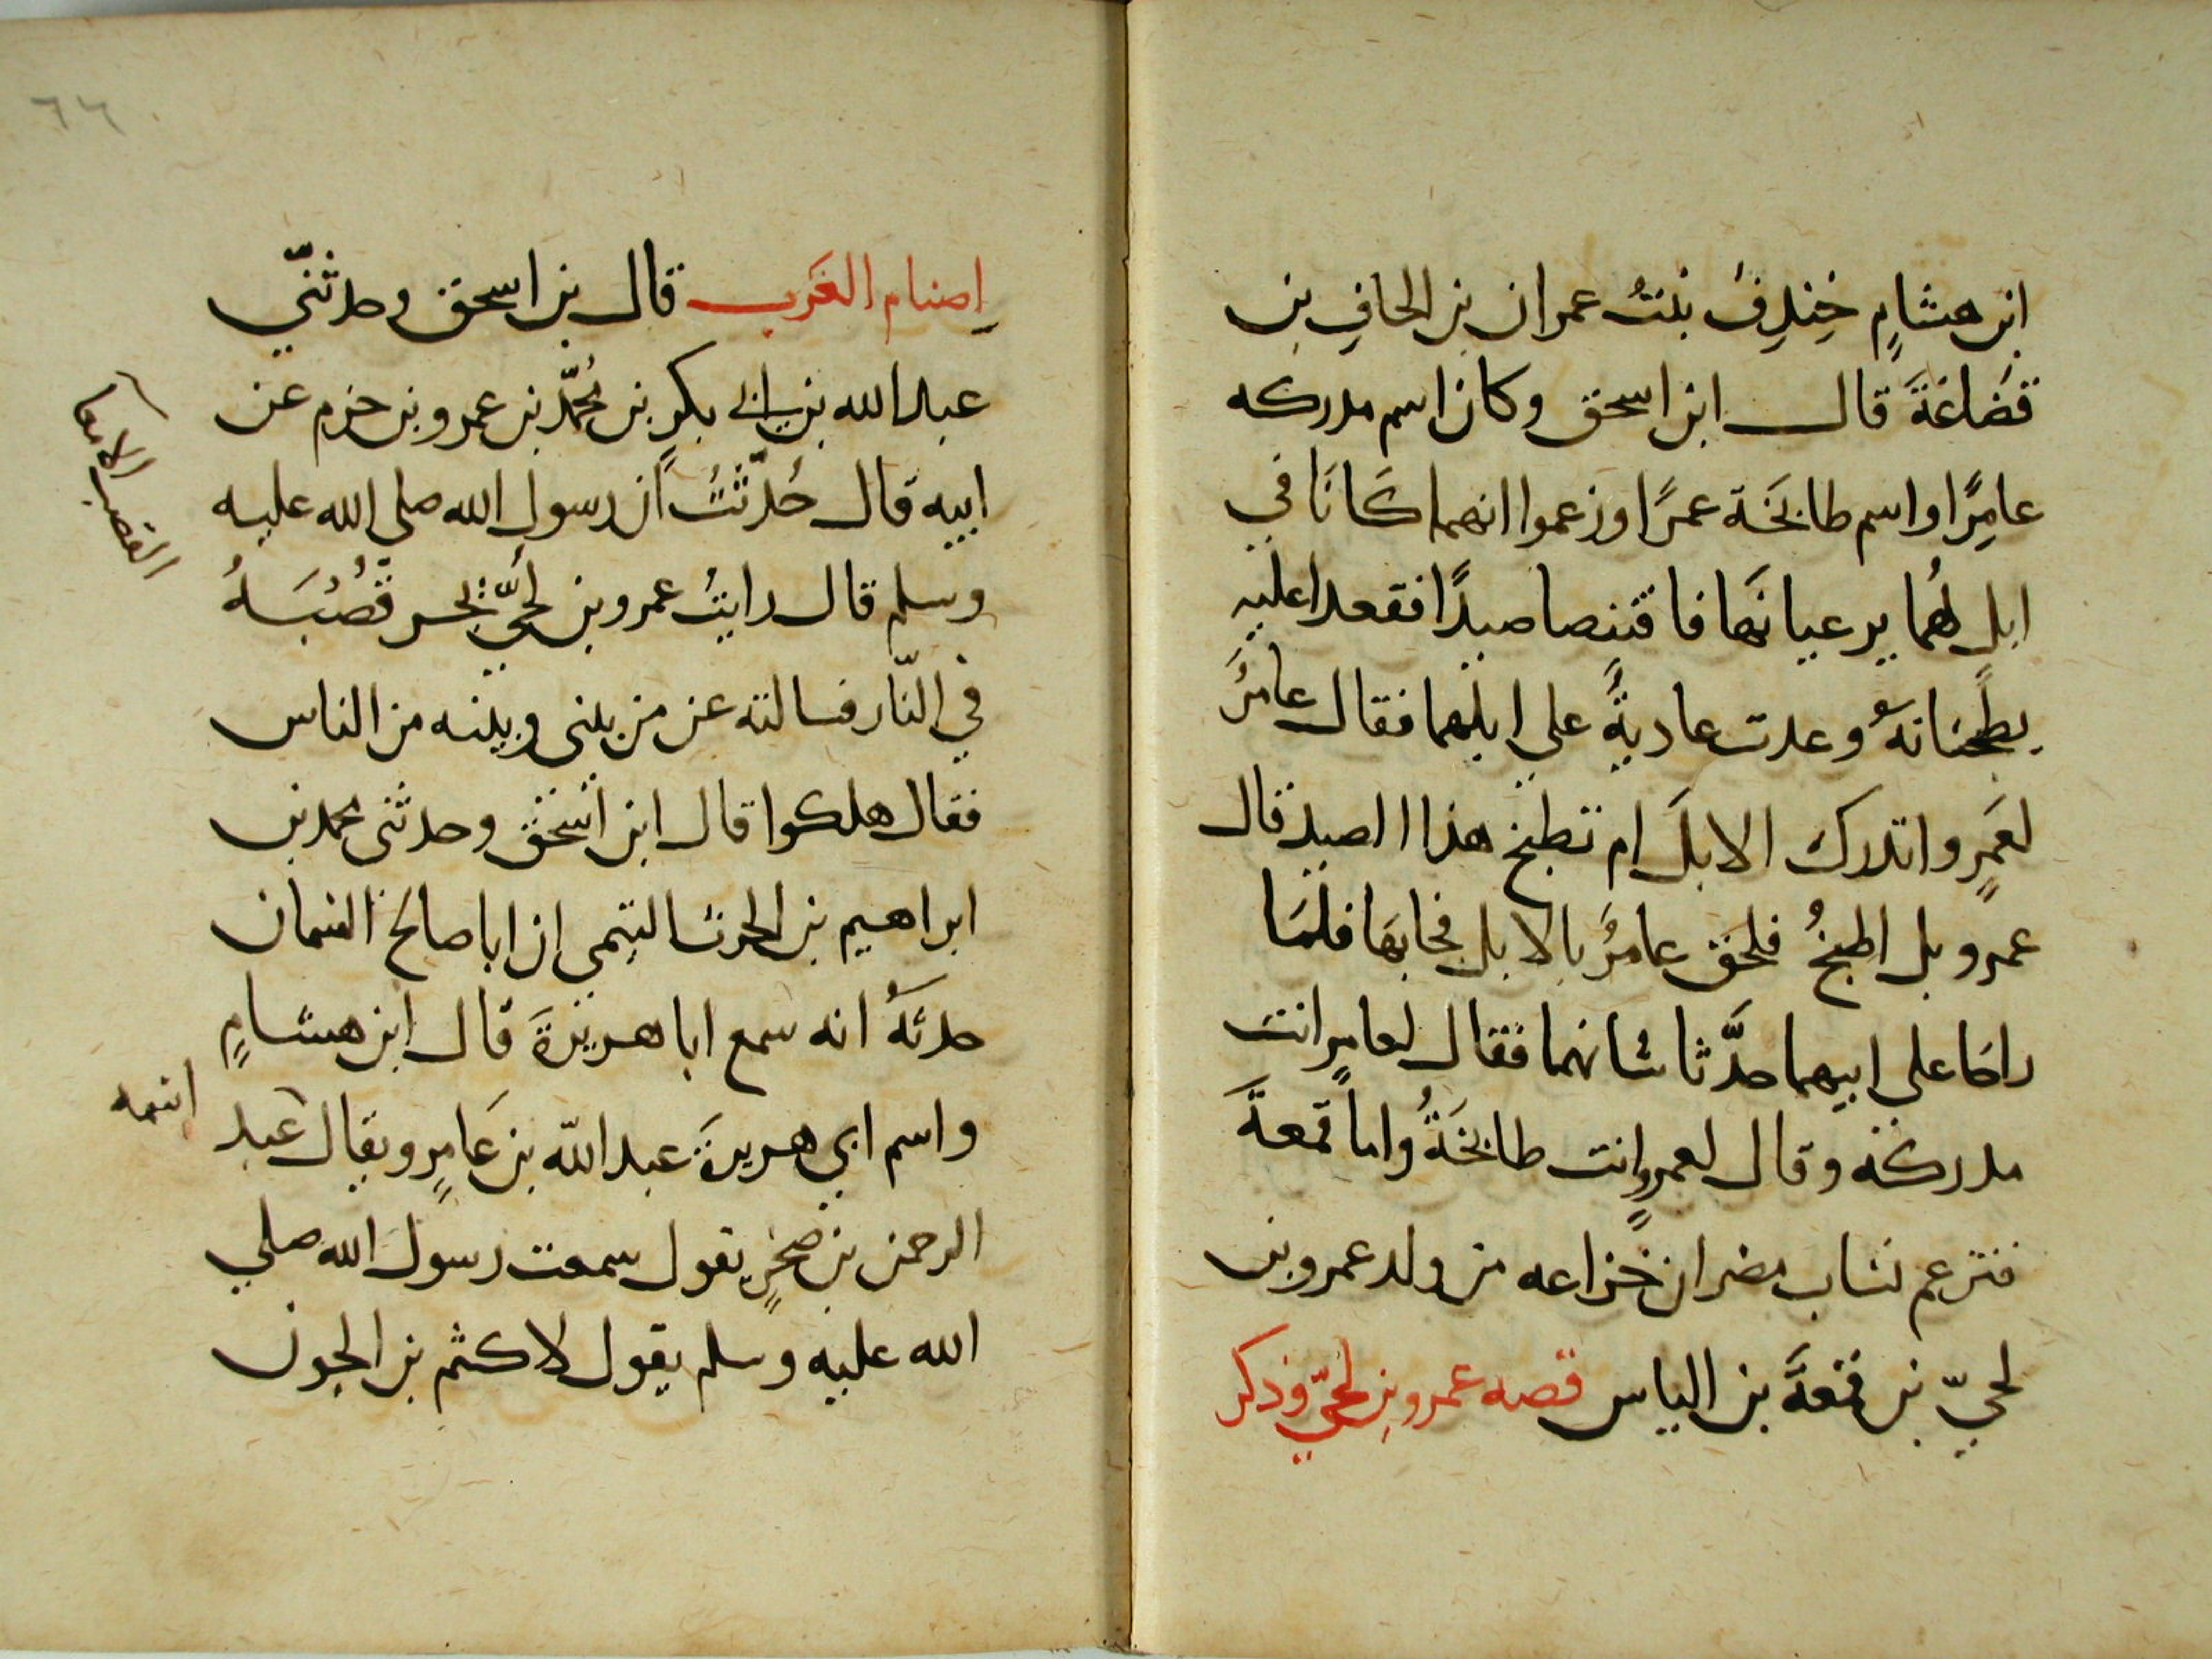 ابن هشامٍ خِندِفُ بنتُ عمران بن الحافِ بن
قضَاعَةَ قال ابن اسحق وكان اسم مدركه
عامِرًا واسم طابخَة عمرًا وزعموا انهما كَانَا في
ابلٍ لهُما يرعيانهَا فاقتنصا صيدًا فقعدا عليه
يطبخَانهُ وعدت عاديةٌ على ابلهما فقال عامرٌ
لعَمرٍو اتدرك الابلَ ام تطبخ هذا الصيد قال
عمرو بل اطبخُ فلحق عامرٌ بالابل فجا بهَا فلمَا
راحَا على ابيهما حدَّثا شانهما فقال لعامرٍ انت
مدركة وقال لعمرٍو انت طابخَةُ واما قمعةَ
فتزعم نساب مضر ان خزاعه من ولد عمرو بن
لحيّ بن قمعَةَ بن الياس قصه عمرو بن لحيّ وذكر
اصنام العَرَب قال بن اسحق وحدثنّي
عبد الله بن ابي بكرٍ بن محمّد بن عمرو بن حزم عن
ابيه قال حُدّثتُ ان رسول الله صلى الله عليه
وسلم قال رايتُ عمرو بن لُحَيّ يجر قُصْبَهُ
في النّار فسالته عن من بيني وبينه من الناس
فقال هلكوا قال ابن اسحق وحدثنى محمد بن
ابراهيم بن الحرث التيمي ان ابا صالح السمان
حدثَهُ انه سمع ابا هريرةَ قال ابن هشامٍ
واسم ابي هريرةَ عبد الله بن عَامرٍ ويقال عبد
الرحمن بن صخرٍ يقول سمعت رسول الله صلي
الله عليه وسلم يقول لاكثم بن الجون
القصب الامعا
اسمه
٦٦